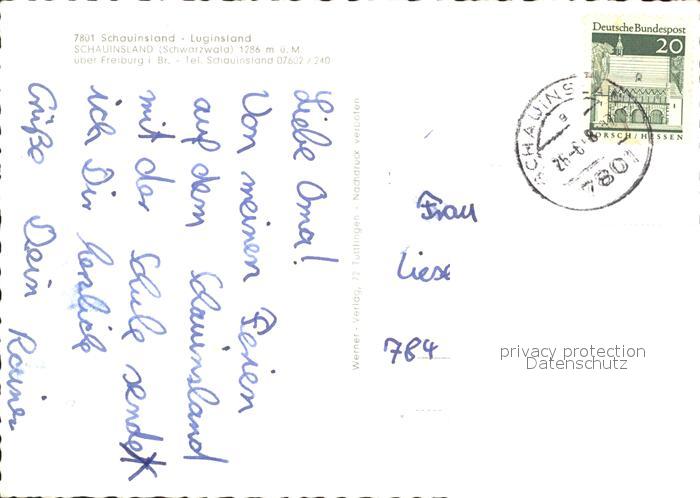 7801 Schauinsland - Luginsland
SCHAUINSLAND (Schwarzwald) 1286 m ü. M.
über Freiburg i Br. - Tel. Schauinsland 07602 / 240
Liebe Oma!
Von meinen Ferien
auf dem Schauinsland
mit der Schule sendet
ich Dir herzliche
Grüße Dein Rainer
Werner-Verlag, 72 Tuttlingen - Nachdruck verboten
Deutsche Bundespost
20
LORSCH/HESSEN
SCHAUINSLAND
7801
Frau
Liese
784
privacy protection
Datenschutz